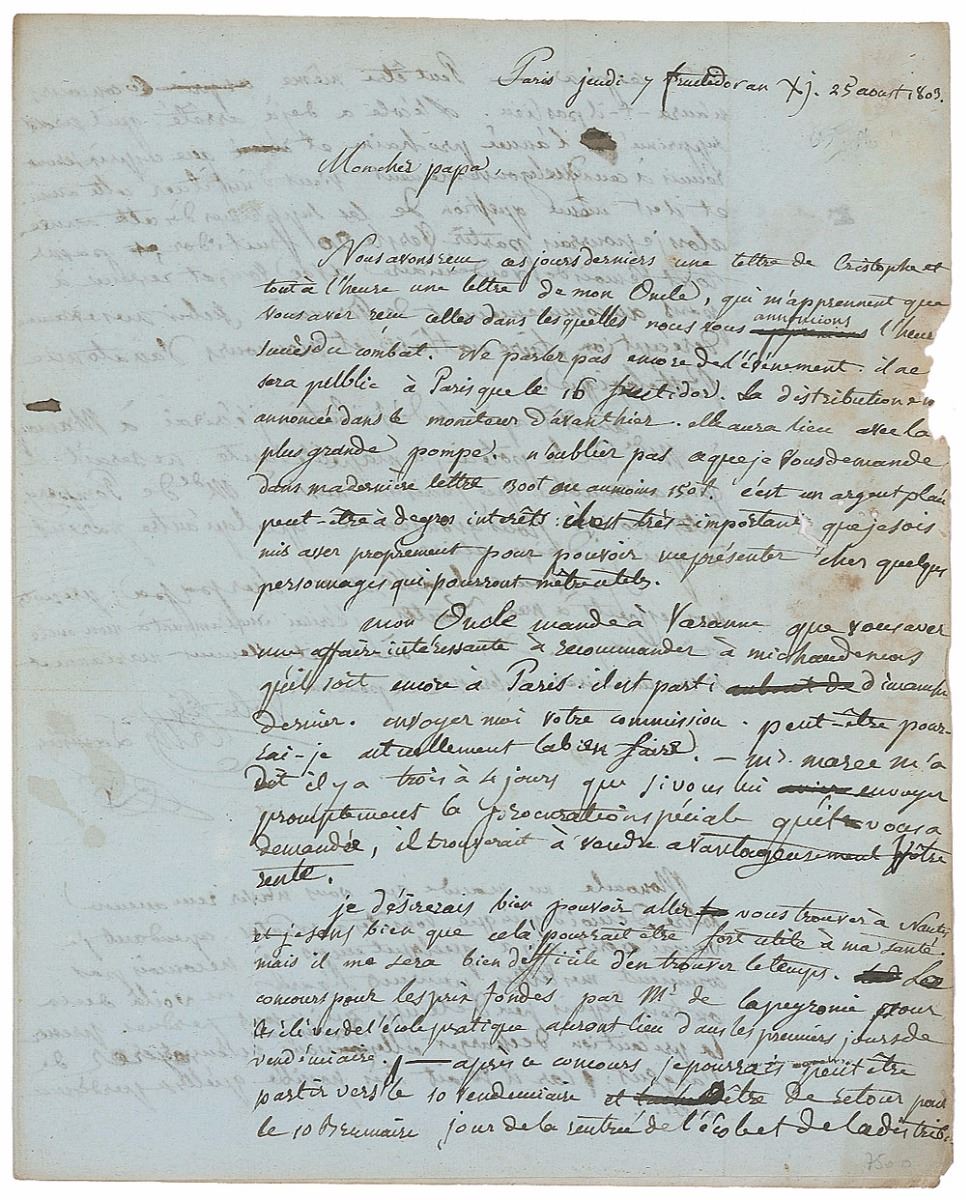 Paris jeudi 7 fructidor an XJ. 25 aoust 1803.
Mon cher papa
Nous avons réçu ces jours derniers une lettre de Cristophe et
tout à l'heure une lettre de mon Oncle, qui m'apprennent que
vous aver réçu celles dans lesquelles nous vous annoncions l'heur
succès du combat. Ne parler pas encore de l'événement. il ne
sera publlic à Paris que le 16 fructidor. La distribution en
annoncée dans le moniteur d'avanthier. elle aura lieu avec la
plus grande pompe. n'oublier pas ce que je vous demande
dans ma derniere lettre 300t ou au moins 150t. c'est un argent placé
peut-être à de gros interêts: il est très-important que je sois
mis aver proprement pour pouvoir me présenter cher quelques
personnages qui pourront m'être utiles.
mon Oncle mande à Varanne que vous aver
une affaire intéressante à recommander à michaud
qu'il soit encore à Paris. il est parti dimanche
dernier. envoyer moi votre commission. peut-être pour-
rai-je actuellement la bien faire. — mr. marec m'a
dit il y a trois à 4 jours que si vous lui envoyer
promptement la procuration spéciale qu'il vous a
demandée, il trouverait à vendre avantageusement vôtre
rente.
je désirerais bien pouvoir aller vous trouver à Nantes
et je sens bien que celà pourrait être fort utile à ma santé.
mais il me sera bien difficile d'en trouver le temps. Le
concours pour les prix fondés par Mr. de lapeyronie pour
les élèves de l'école pratique auront lieu dans les premiers jours de
vendémiaire. — après ce concours je pourrais peut être
partir vers le 10 vendemiaire et être de retour pour
le 10 Brumaire jour de la rentrée de l'école et de la distrib
7500